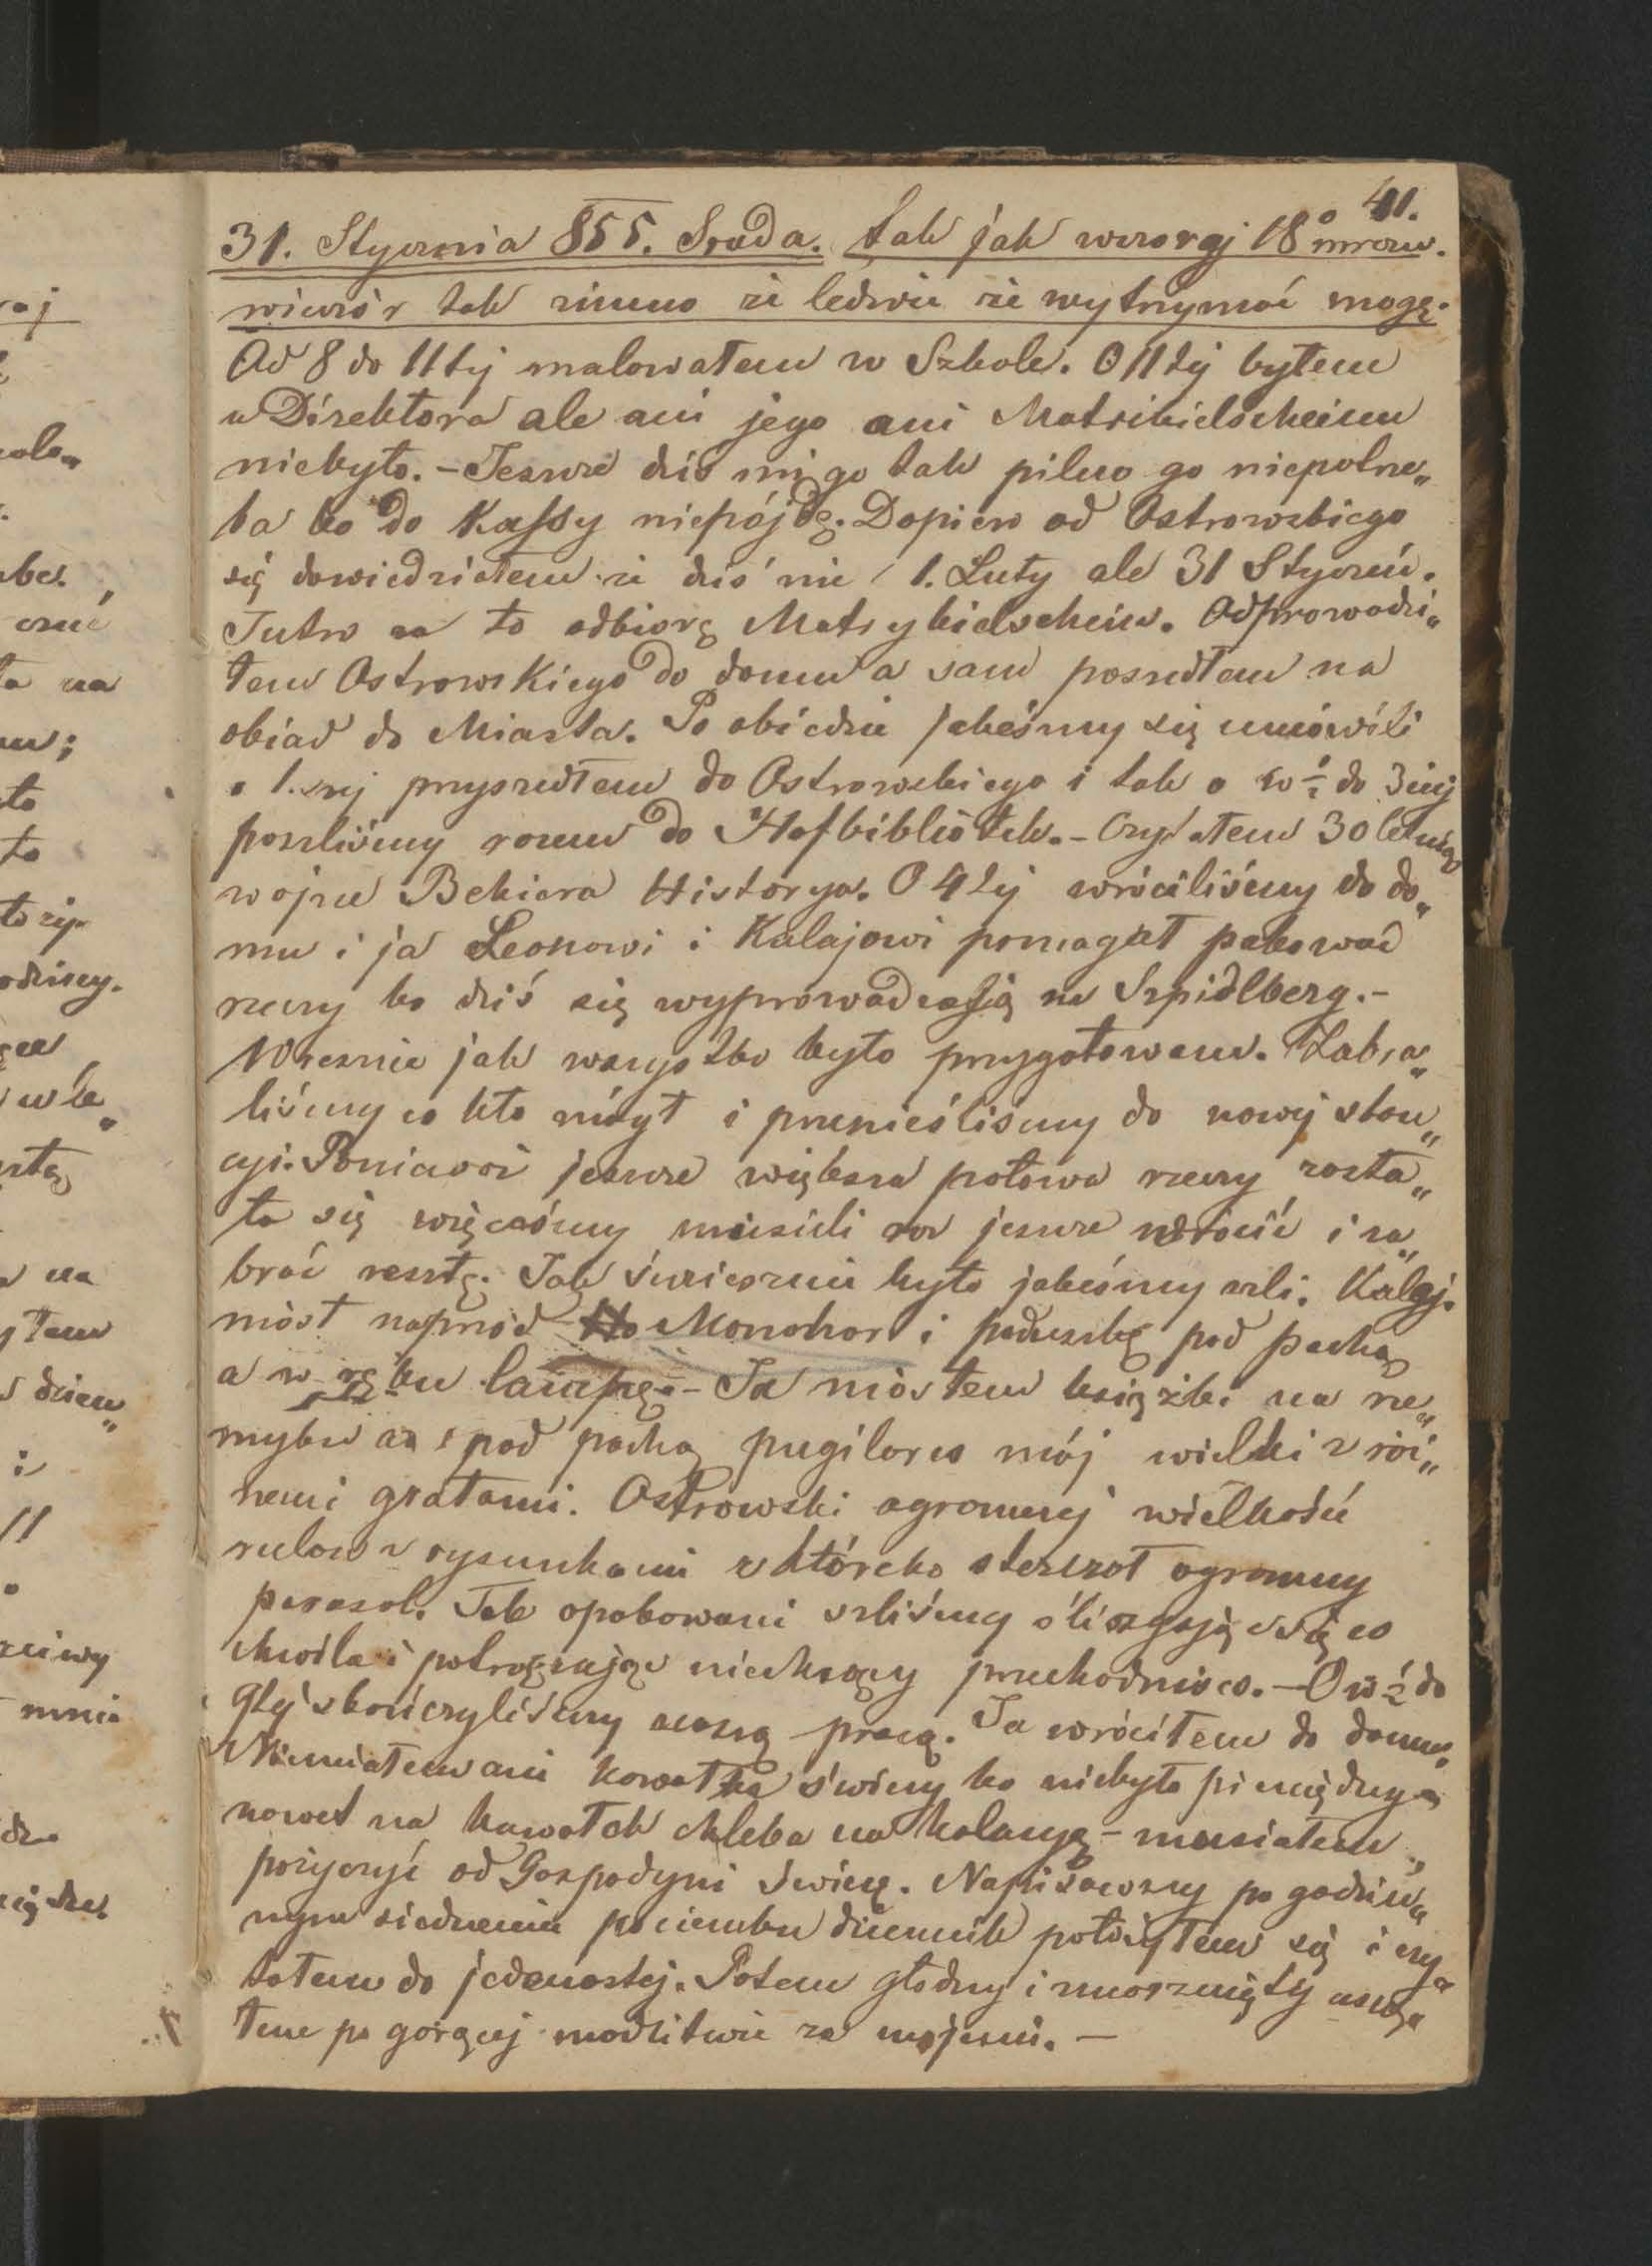 41.
31. Stycznia 855. Środa. Tak jak wczoraj 18° mrozu.
wieczór tak zimno że ledwie że wytrzymać mogę.
Od 8 do 11tej malowałem w Szkole. O 11tej byłem
u Direktora ale ani jego ani Matrikielscheinu
niebyło. – Jeszcze dziś mi go tak pilno go niepotrze„
ba bo do Kassy niepójdę. Dopiero od Ostrowskiego
się dowiedziałem że dziś nie 1. Luty ale 31 Styczeń.
Jutro za to odbiorę Matrykielschein. Odprowadzi„
łem Ostrowskiego do domu a sam poszedłem na
obiad do Miasta. Po obiedzie jakeśmy się umówili
o 1.szej przyszedłem do Ostrowskiego i tak o w ½ do 3ciej
poszliśmy razem do Hofbibliotek. – Czytałem 30 letniej
wojnę Bekiera Historya. O 4tej wróciliśmy do do„
mu i ja Leonowi i Kalajowi pomagał pakować
rzeczy bo dziś się wyprowadzają na Szpidlberg. –
Wreszcie jak wszystko było przygotowane. Zabra„
liśmy co kto mógł i przenieśliśmy do nowej stan„
cyi. Ponieważ jeszcze większa połowa rzeczy zosta„
ła się więceśmy musieli raz jeszcze wrócić i za„
brać resztę. Jak śmiesznie było jakeśmy szli. Kalaj.
niósł naprzód Monohord i poduszkę pod pachą
a w ręku lampę. – Ja niosłem książki na rze„
myku a pod pachą pugilares mój wielki z róż„
nemi gratami. Ostrowski ogromnej wielkości
rulon z rysunkami z którcho sterczał ogromny
parasol. Tak opakowani szliśmy ślizgając się co
chwila i potrącając niechcący przechodniów. – O w ½ do
9tej skończyliśmy naszą pracę. Ja wróciłem do domu.
Niemiałem ani kawałka świecy bo niebyło pieniędzy
nawet na kawałek chleba na kolacyę – musiałem
pożyczyć od Gospodyni świecę. Napisawszy po godzin„
nym siedzeniu pociemku dziennik położyłem się i czy„
tałem do jedenastej. Potem głodny i zmarznięty usną„
łem po gorącej modlitwie za mojemi. –